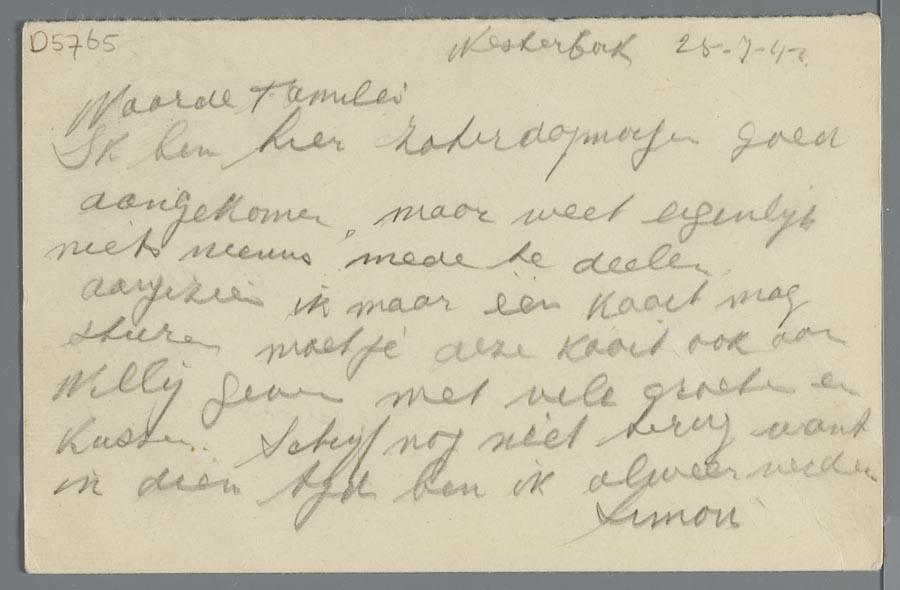 D5765
Westerbork 25-7-42
Waarde Familei
Ik ben hier Zaterdagmorgen goed
aangekomen, maar weet eigenlijk
niets nieuws mede te deelen,
aangezien ik maar één kaart mag
sturen moet je deze kaart ook aan
Willy geven met vele groeten en
kussen. Schrijf nog niet terug want
in dien tijd ben ik alweer verder
Simon